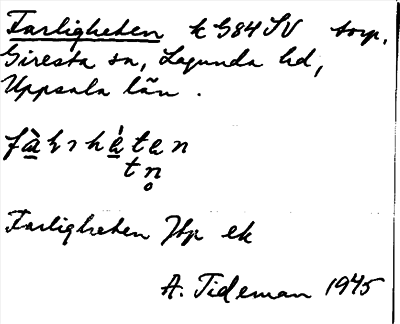 Farligheten k G84 SV torp.
Giresta sn, Lagunda hd,
Uppsala län.
Farligheten Jbp ek
A. Tideman 1945